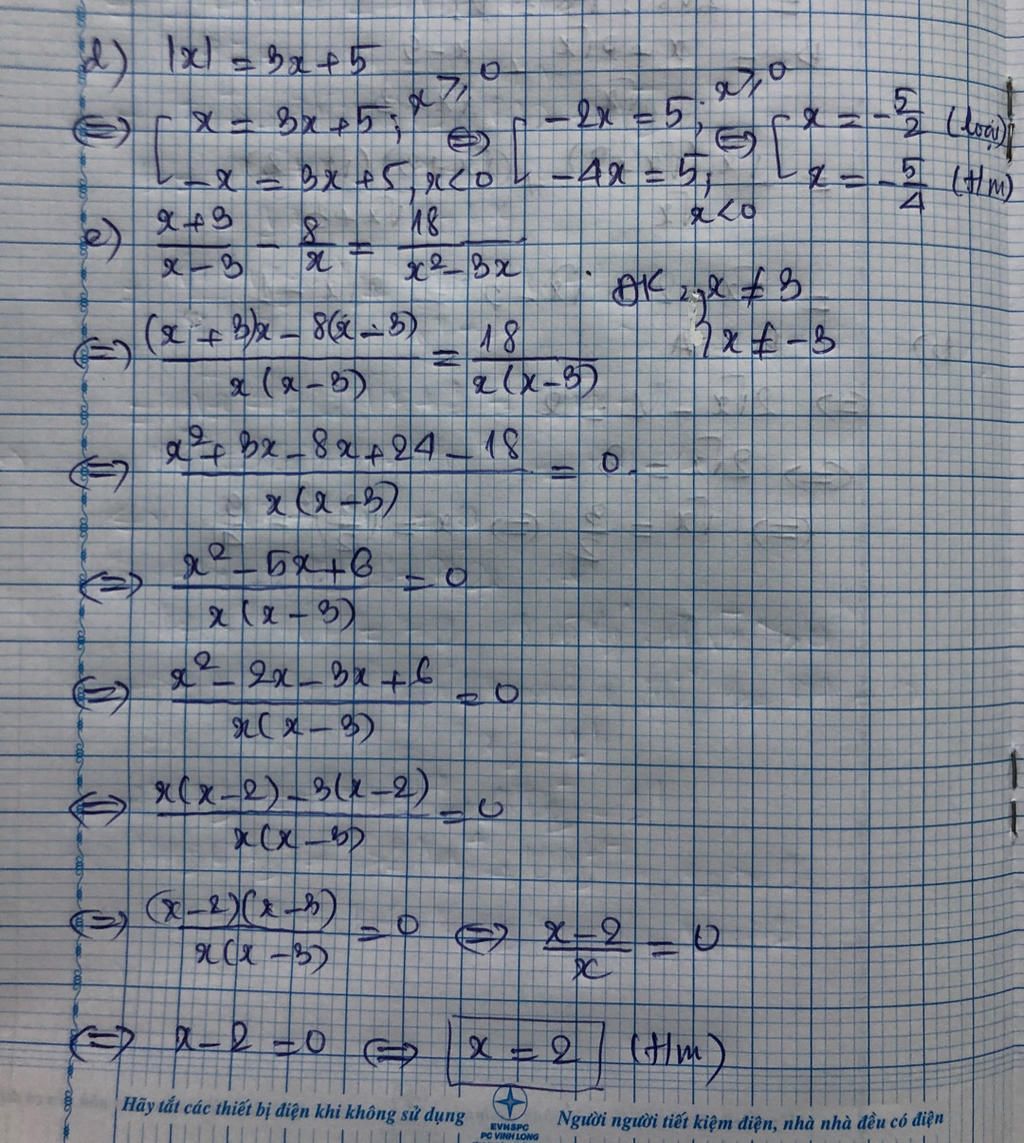 d) |x| = 3x + 5
⇔ [ x = 3x + 5; x ≥ 0 ⇔ [ -2x = 5; x ≥ 0 ⇔ [ x = -5/2 (loại)
-x = 3x + 5, x < 0 -4x = 5; x < 0 x = -5/4 (thm)
e) (x+3)/(x-3) - 8/x = 18/(x² - 3x)
ĐK: { x ≠ 3
x ≠ -3
⇔ ((x + 3)x - 8(x - 3))/(x(x - 3)) = 18/(x(x - 3))
⇔ (x² + 3x - 8x + 24 - 18)/(x(x - 3)) = 0
⇔ (x² - 5x + 6)/(x(x - 3)) = 0
⇔ (x² - 2x - 3x + 6)/(x(x - 3)) = 0
⇔ (x(x - 2) - 3(x - 2))/(x(x - 3)) = 0
⇔ ((x - 2)(x - 3))/(x(x - 3)) = 0 ⇔ (x - 2)/x = 0
⇔ x - 2 = 0 ⇔ x = 2 (thm)
Hãy tắt các thiết bị điện khi không sử dụng
EVNSPC
PC VINH LONG
Người người tiết kiệm điện, nhà nhà đều có điện